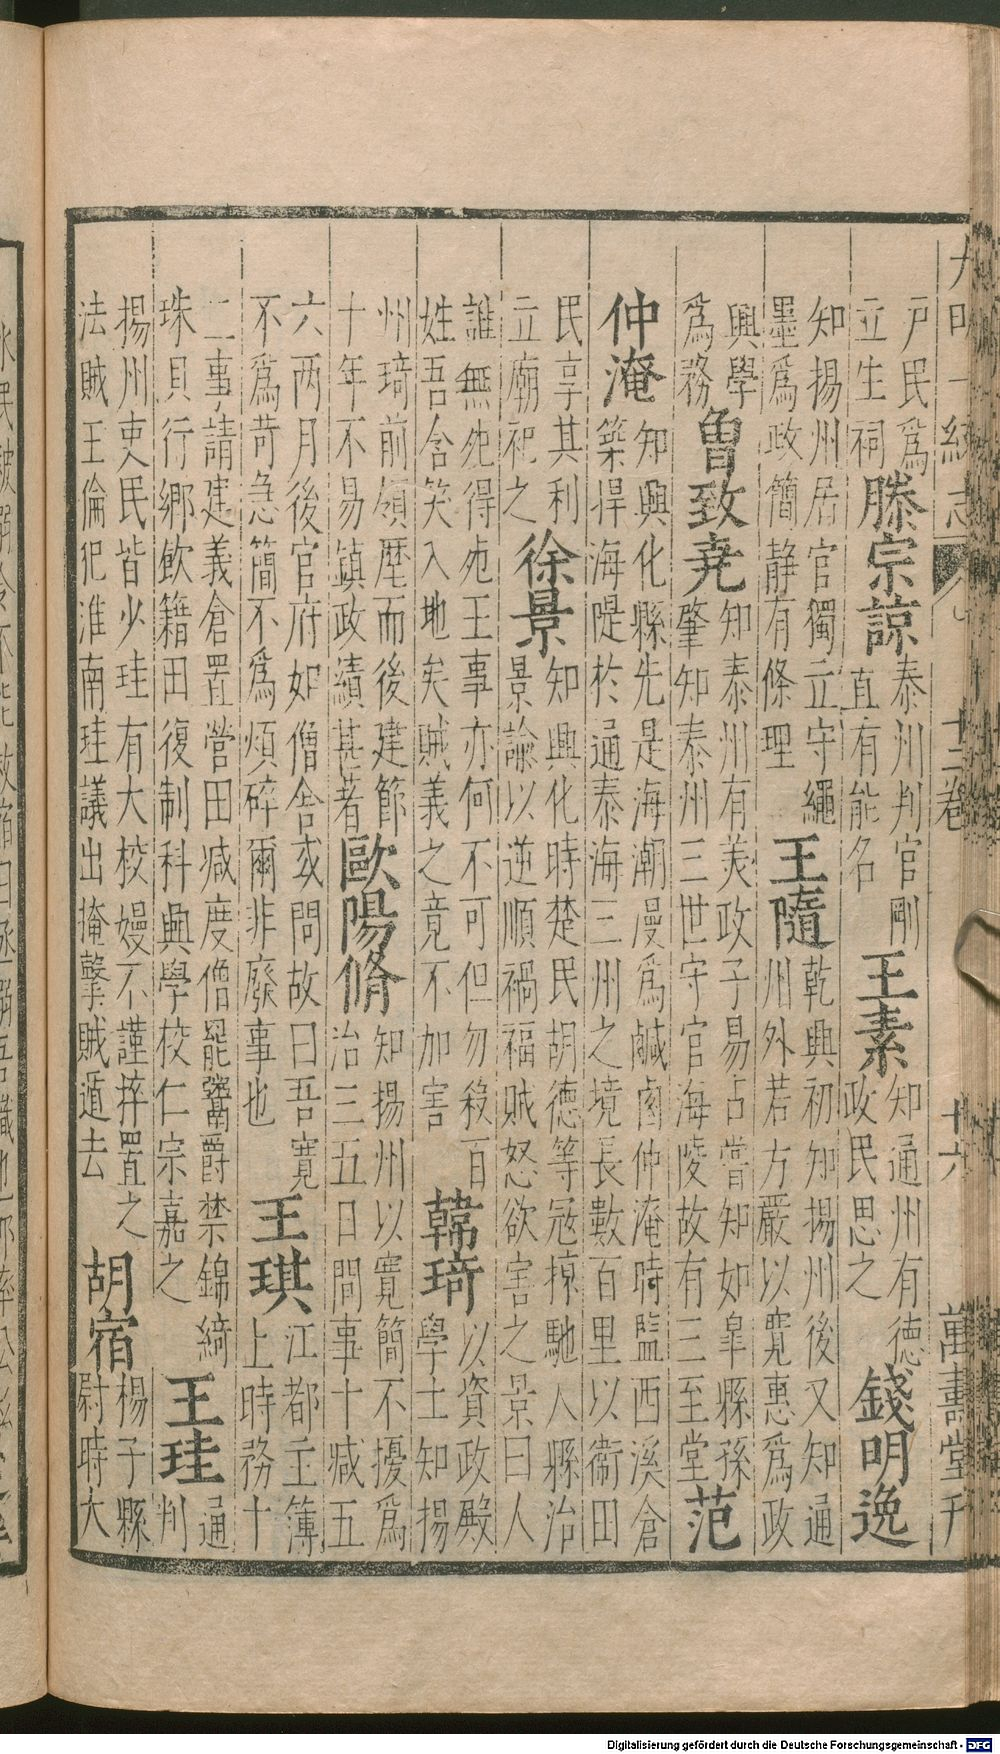 大明一統志 十二卷 廿六 萬壽堂刊
戶民爲
立生祠
滕宗諒
泰州判官剛
直有能名
王素
知通州有德
政民思之
錢明逸
知揚州居官獨立守繩
墨爲政簡靜有條理
王隨
乾興初知揚州後又知通
州外若方嚴以寬惠爲政
興學
爲務
魯致尭
知泰州有美政子易占嘗知如皐縣孫
肇知泰州三世守官海陵故有三至堂
范
仲淹
知興化縣先是海潮漫爲鹹鹵仲淹時監西溪倉
築捍海隄於通泰海三州之境長數百里以衛田
民享其利
立廟祀之
徐景
知興化時楚民胡德等冦掠馳入縣治
景諭以逆順禍福賊怒欲害之景曰人
誰無死得死王事亦何不可但勿殺百
姓吾含笑入地矣賊義之竟不加害
韓琦
以資政殿
學士知揚
州琦前領歷而後建節
十年不易鎮政績甚著
歐陽脩
知揚州以寬簡不擾爲
治三五日間事十减五
六两月後官府如僧舍或問故曰吾寬
不爲苛急簡不爲煩碎爾非廢事也
王琪
江都主簿
上時務十
二事請建義倉置營田减度僧罷鬻爵禁錦綺
珠貝行鄉飲籍田復制科興學校仁宗嘉之
王珪
通
判
揚州吏民皆少珪有大校嫚不謹捽置之
法賊王倫犯淮南珪議出掩擊賊遁去
胡宿
楊子縣
尉時大
Digitalisierung gefördert durch die Deutsche Forschungsgemeinschaft - DFG